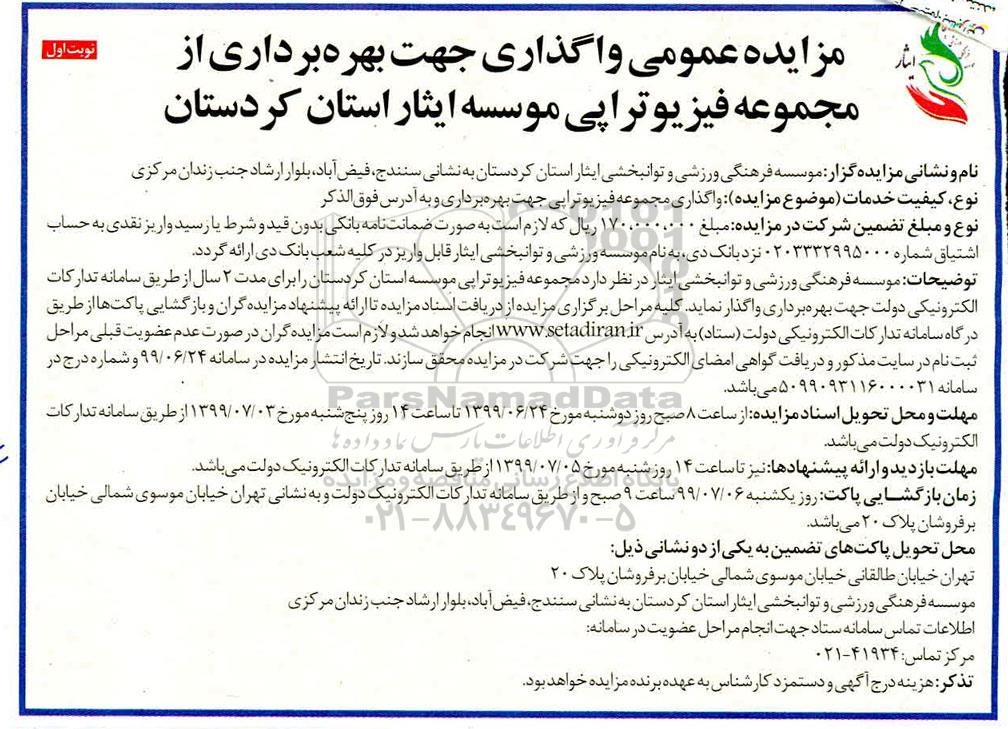 ایثار
نوبت اول
مزایده عمومی واگذاری جهت بهره‌برداری از
مجموعه فیزیوتراپی موسسه ایثار استان کردستان
نام و نشانی مزایده‌گزار: موسسه فرهنگی ورزشی و توانبخشی ایثار استان کردستان به نشانی سنندج، فیض‌آباد، بلوار ارشاد جنب زندان مرکزی
نوع، کیفیت خدمات (موضوع مزایده): واگذاری مجموعه فیزیوتراپی جهت بهره‌برداری و به آدرس فوق‌الذکر
نوع و مبلغ تضمین شرکت در مزایده: مبلغ ۱۷۰,۰۰۰,۰۰۰ ریال که لازم است به صورت ضمانت‌نامه بانکی بدون قید و شرط یا رسید واریز نقدی به حساب
اشتیاق شماره ۰۲۰۳۳۳۲۹۹۵۰۰۰ نزد بانک دی، به نام موسسه ورزشی و توانبخشی ایثار قابل واریز در کلیه شعب بانک دی ارائه گردد.
توضیحات: موسسه فرهنگی ورزشی و توانبخشی ایثار در نظر دارد مجموعه فیزیوتراپی موسسه استان کردستان را برای مدت ۲ سال از طریق سامانه تدارکات
الکترونیکی دولت جهت بهره‌برداری واگذار نماید. کلیه مراحل برگزاری مزایده از دریافت اسناد مزایده تا ارائه پیشنهاد مزایده‌گران و بازگشایی پاکت‌ها از طریق
درگاه سامانه تدارکات الکترونیکی دولت (ستاد) به آدرس www.setadiran.ir انجام خواهد شد و لازم است مزایده‌گران در صورت عدم عضویت قبلی مراحل
ثبت نام در سایت مذکور و دریافت گواهی امضای الکترونیکی را جهت شرکت در مزایده محقق سازند. تاریخ انتشار مزایده در سامانه ۹۹/۰۶/۲۴ و شماره درج در
سامانه ۵۰۹۹۰۹۳۱۱۶۰۰۰۰۳۱ می‌باشد.
مهلت و محل تحویل اسناد مزایده: از ساعت ۸ صبح روز دوشنبه مورخ ۱۳۹۹/۰۶/۲۴ تا ساعت ۱۴ روز پنج‌شنبه مورخ ۱۳۹۹/۰۷/۰۳ از طریق سامانه تدارکات
الکترونیک دولت می‌باشد.
مهلت بازدید و ارائه پیشنهادها: نیز تا ساعت ۱۴ روز شنبه مورخ ۱۳۹۹/۰۷/۰۵ از طریق سامانه تدارکات الکترونیک دولت می‌باشد.
زمان بازگشایی پاکت: روز یکشنبه ۹۹/۰۷/۰۶ ساعت ۹ صبح و از طریق سامانه تدارکات الکترونیک دولت و به نشانی تهران خیابان موسوی شمالی خیابان
برفروشان پلاک ۲۰ می‌باشد.
محل تحویل پاکت‌های تضمین به یکی از دو نشانی ذیل:
تهران خیابان طالقانی خیابان موسوی شمالی خیابان برفروشان پلاک ۲۰
موسسه فرهنگی ورزشی و توانبخشی ایثار استان کردستان به نشانی سنندج، فیض‌آباد، بلوار ارشاد جنب زندان مرکزی
اطلاعات تماس سامانه ستاد جهت انجام مراحل عضویت در سامانه:
مرکز تماس: ۴۱۹۳۴-۰۲۱
تذکر: هزینه درج آگهی و دستمزد کارشناس به عهده برنده مزایده خواهد بود.
ParsNamadData
مرکز فرآوری اطلاعات پارس نماد داده‌ها
پایگاه اطلاع رسانی مناقصه و مزایده
۰۲۱-۸۸۳۴۹۶۷۰-۵